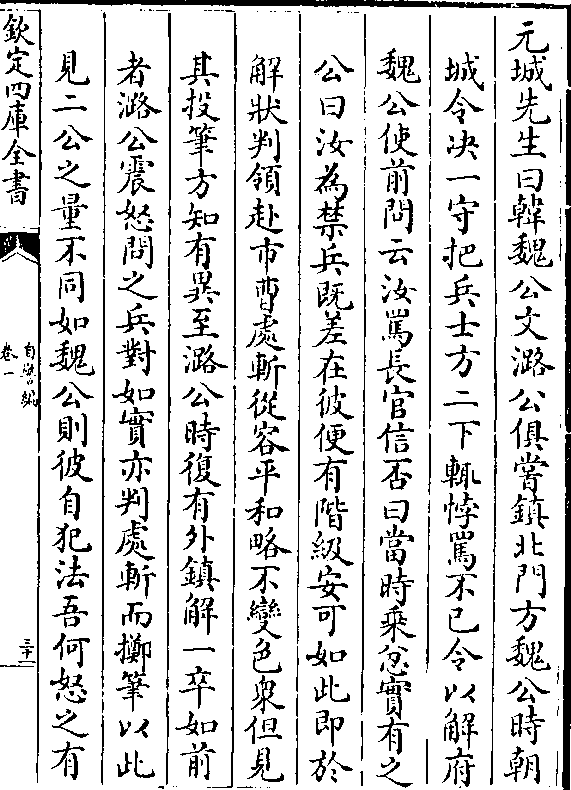 元城先生曰韓魏公文潞公俱嘗鎮北門方魏公時朝
城令决一守把兵士方二下輒悖罵不已令以解府
魏公使前問云汝罵長官信否曰當時乗忿實有之
公曰汝為禁兵既差在彼便有階級安可如此即於
解狀判領赴市曹處斬從容平和略不變色衆但見
其投筆方知有異至潞公時復有外鎮解一卒如前
者潞公震怒問之兵對如實亦判處斬而擲筆以此
見二公之量不同如魏公則彼自犯法吾何怒之有
欽定四庫全書
自警編
卷一
三十一